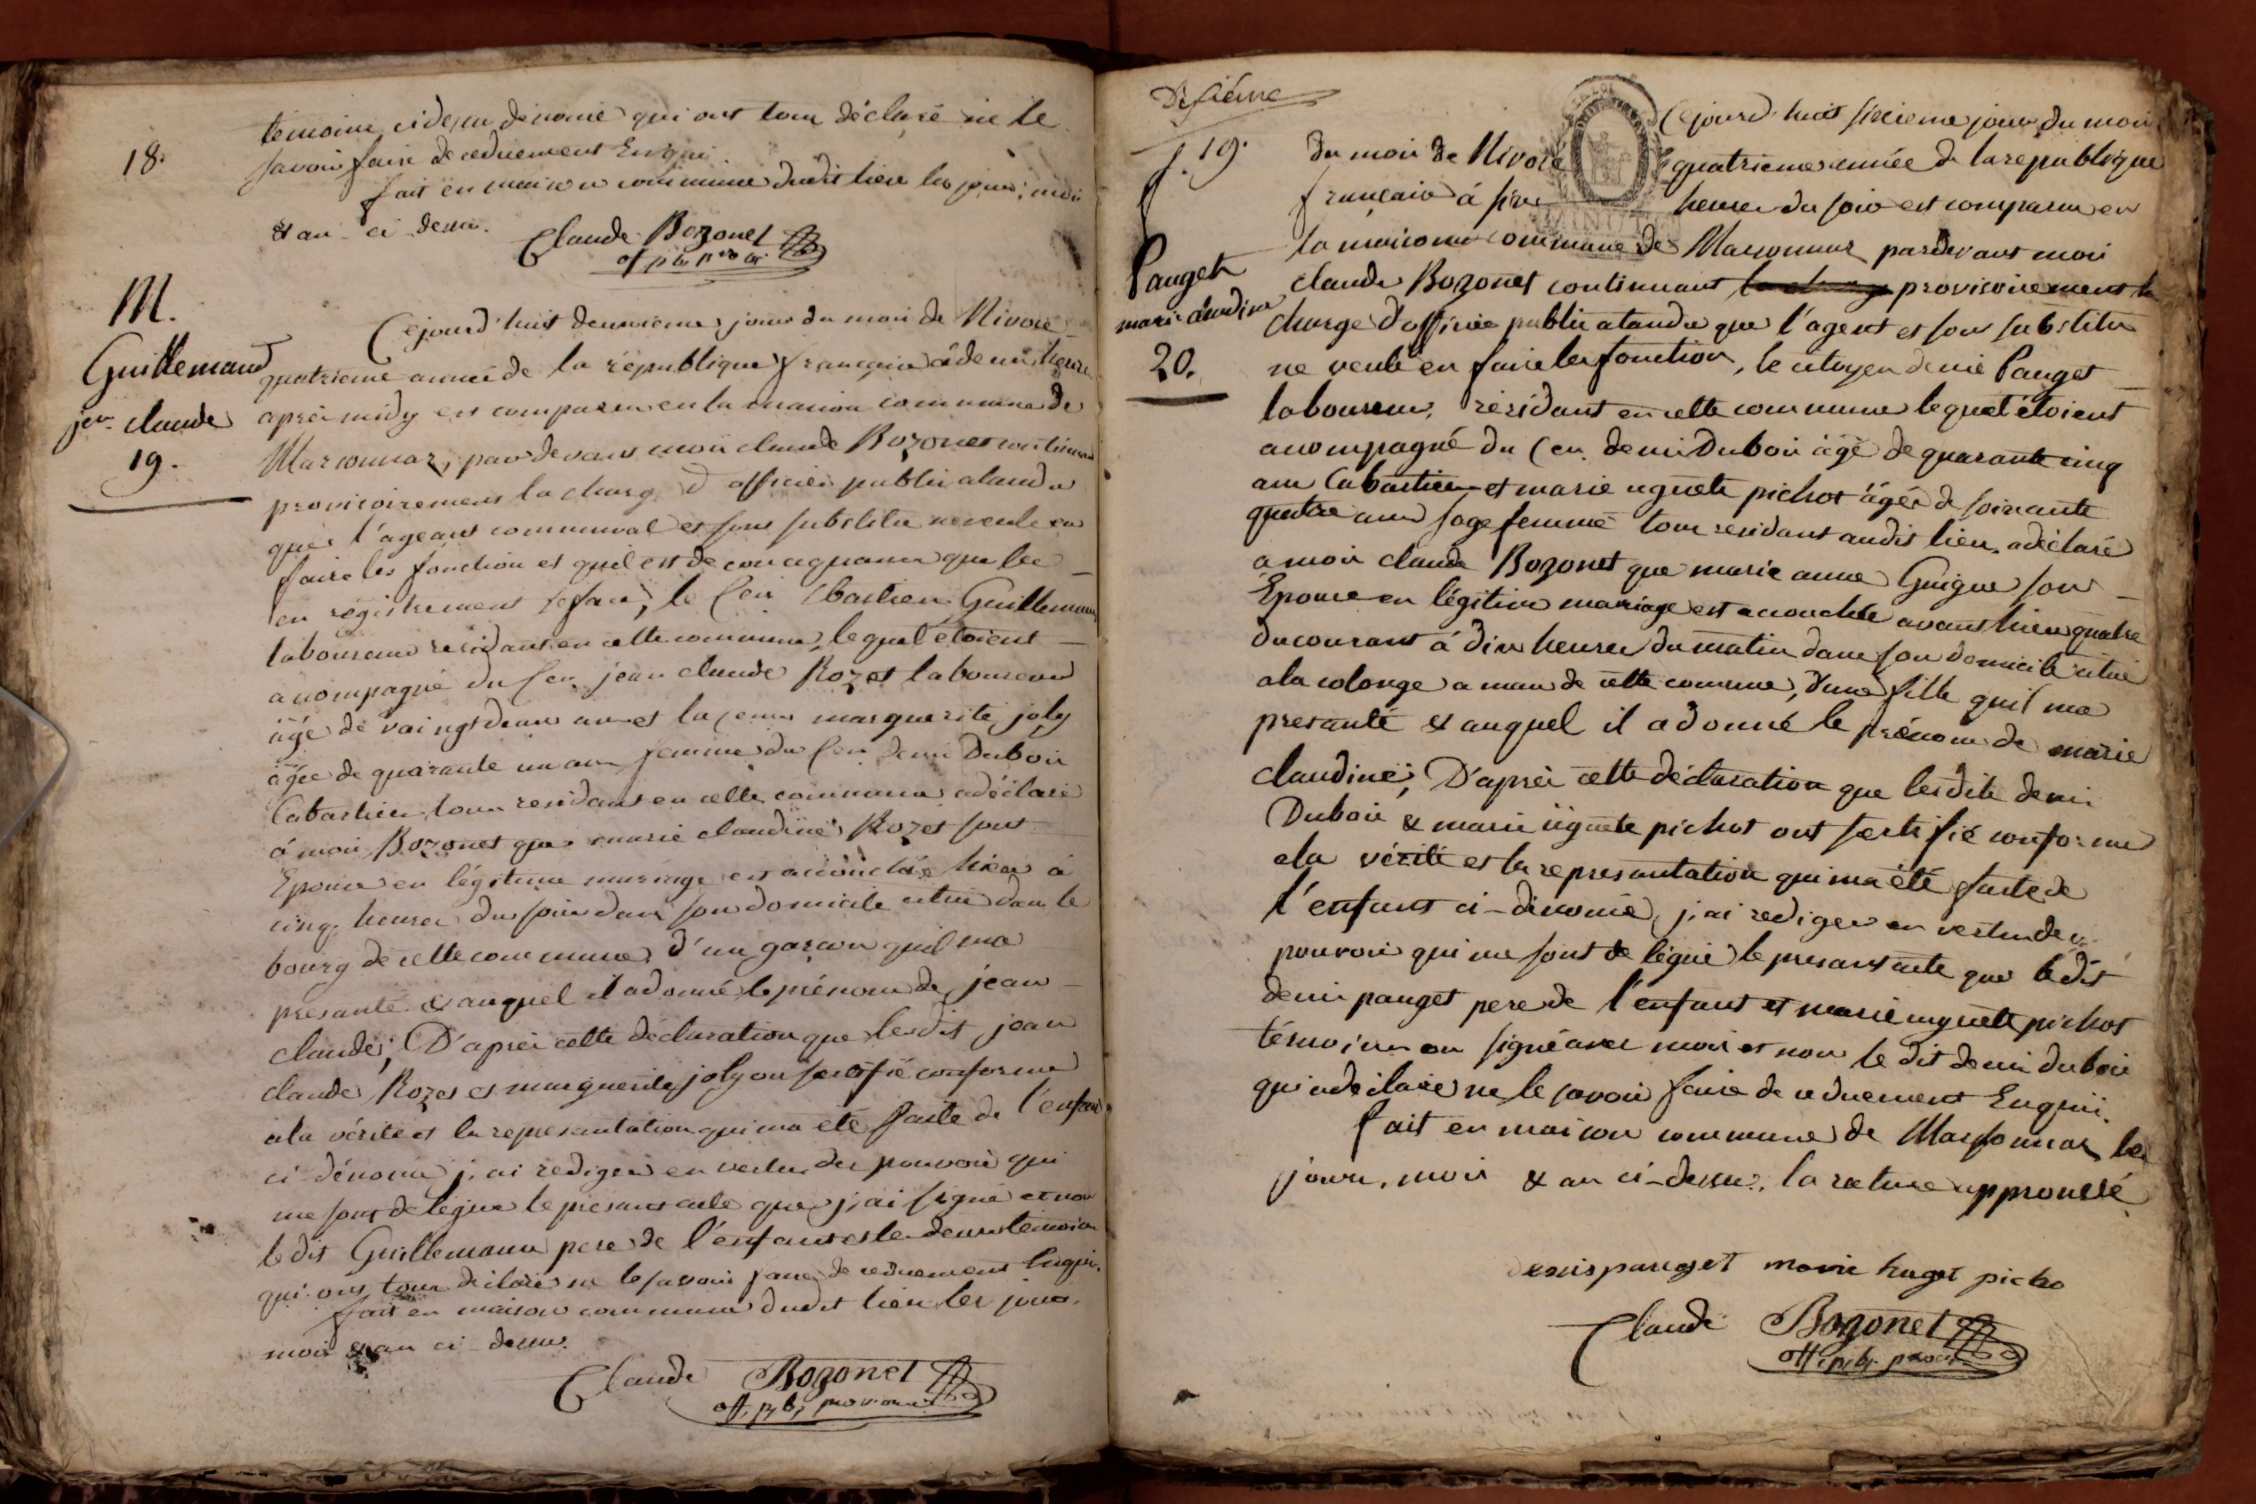 18.
temoins cidessu dénomé qui ont tous déclaré ne le
savoir faire de ceduement Enquis
fait en maison commune dudit lieu les jour, mois
& an ci dessus.
Claude Bozonet
off pb pro
M.
Guillemaud
jean claude
19.
Cejourd'huit deuxieme jour du mois de Nivose
quatrieme année de la république française à deux heure
après midy est comparu en la maison commune de
Marsonnaz, pardevant moi claude Bozonet continuant
provisoirement la charge d'officier public atandu
que l'agent communal et son substitu ne veule en
faire les fonction et quil est de consequance que les
en régistrement se fase, le Cen Ebastien Guillemaud
laboureur residant en cette commune, lequel étoient
acompagné du Cen jean claude Rozet laboureur
âgé de vaingt deux an et la cenne marguerite joly
âgée de quarante un an femme du Cen denis Dubois
Cabartier, tous residant en cette commune adéclaré
à moi Bozonet que marie claudine Rozet sont
Epouse en légitime mariage est acouchée hier à
cinq heures du soir dans son domicile citué dans le
bourg de cette commune, d'un garson quil ma
presanté & auquel il adonné le prénom de jean
claude; D'après cette déclaration que lesdit jean
claude Rozet et marguerite joly on sertifié conforme
ala vérité et la representation qui ma été faite de l'enfant
ci-dénomé j,ai redigé en vertu des pouvoir qui
me sont delegué le presant acte que j,ai signé et non
le dit Guillemaud pere de l'enfant et les deux témoin
qui ont tous déclaré ne le savoir faire de ceduement Enquis.
fait en maison commune dudit lieu les jour,
mois & an ci-dessus.
Claude Bozonet
off. pb, provisoire
Dixième
f. 19.
Pauget
marie claudine
20.
Cejourd'huit sixieme jour du mois
du mois de Nivose quatrieme année de la republique
française à six heures du soir est comparu en
la maison commune de Marsonnaz pardevant moi
claude Bozonet continuant provisoirement la
charge d'officie public atandu que l'agent et son substitu
ne veule en faire les fonction, le citoyen denis Pauget
laboureur, résidant en cette commune lequel étoient
acompagné du Cen denis Dubois âgé de quarante cinq
ans Cabartier et marie uguete pichot âgée de soixante
quatre ans sage femme tous residant audit lieu, adéclaré
a moi claude Bozonet que marie anne Guigue son
Epouse en légitime mariage est acouchée avant hier quatre
du courant à dix heures du matin dans son domicile citué
ala colonge a mau de cette comune, d'une fille quil ma
presanté & auquel il adonné le prénom de marie
claudine; D'après cette déclaration que lesdite denis
Dubois & marie uguete pichot ont sertifié conforme
ala vérité et la representation qui ma été faite de
l'enfant ci-dénomé, j,ai rediger en vertu des
pouvoir qui me sont delégué le presant acte que ledit
denis pauget pere de l'enfant et marie uguette pichot
témoins on signé avec moi et non le dit denis dubois
qui adéclaré ne le savoir faire de ceduement Enquis
fait en maison commune de Marsonnas les
jours, mois & an ci-dessus, la rature approuvé.
denis pauget marie huget picho
Claude Bozonet
off. pb. provi